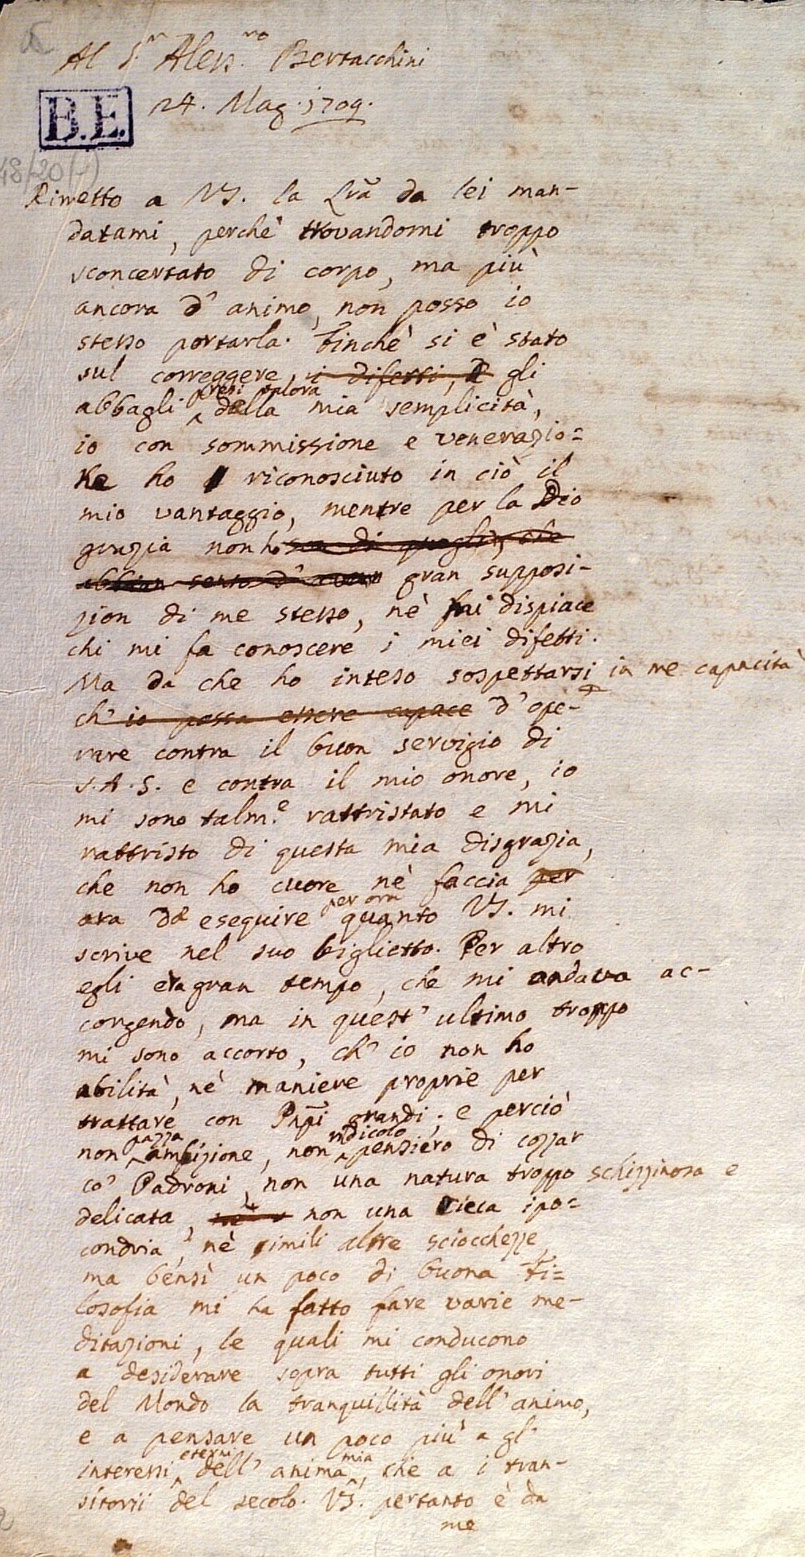 Al S.r Aless.ro Bertacchini
B.E.
24. Mag. 1709.
48/20(1)
Rimetto a VS. la Lrã da lei man-
datami, perchè trovandomi troppo
sconcertato di corpo, ma più
ancora d' animo, non posso io
stesso portarla. Finchè si è stato
sul correggere, i difetti, gli
presi talora
abbagli della mia semplicità,
io con sommissione e venerazio=
ne ho riconosciuto in ciò il
mio vantaggio, mentre per la Dio
grazia non ho son di quegli, che
abbian gran supposi-
zion di me stesso, nè mi dispiace
chi mi fa conoscere i miei difetti.
Ma da che ho inteso sospettarsi in me capacità
ch' io possa essere capace d' ope-
rare contra il buon servigio di
S.A.S. e contra il mio onore, io
mi sono talm.e rattristato e mi
rattristo di questa mia disgrazia,
che non ho cuore nè faccia per
per ora
ora di eseguire quanto VS. mi
scrive nel suo biglietto. Per altro
egli era gran tempo, che mi andava ac-
corgendo, ma in quest' ultimo troppo
mi sono accorto, ch' io non ho
abilità, nè maniere proprie per
trattare con Pñpi grandi; e perciò
pazza ridicolo
non ambizione, non pensiero di cozzar
co' Padroni, non una natura troppo schizzinosa e
delicata, non una cieca ipo=
condria, nè simili altre sciocchezze
ma bensì un poco di buona Fi=
losofia mi ha fatto fare varie me-
ditazioni, le quali mi conducono
a desiderare sopra tutti gli onori
del Mondo la tranquillità dell' animo,
e a pensare un poco più a gl'
eterni mia
interessi dell' anima, che a i tran-
sitorii del secolo. VS. pertanto è da
me